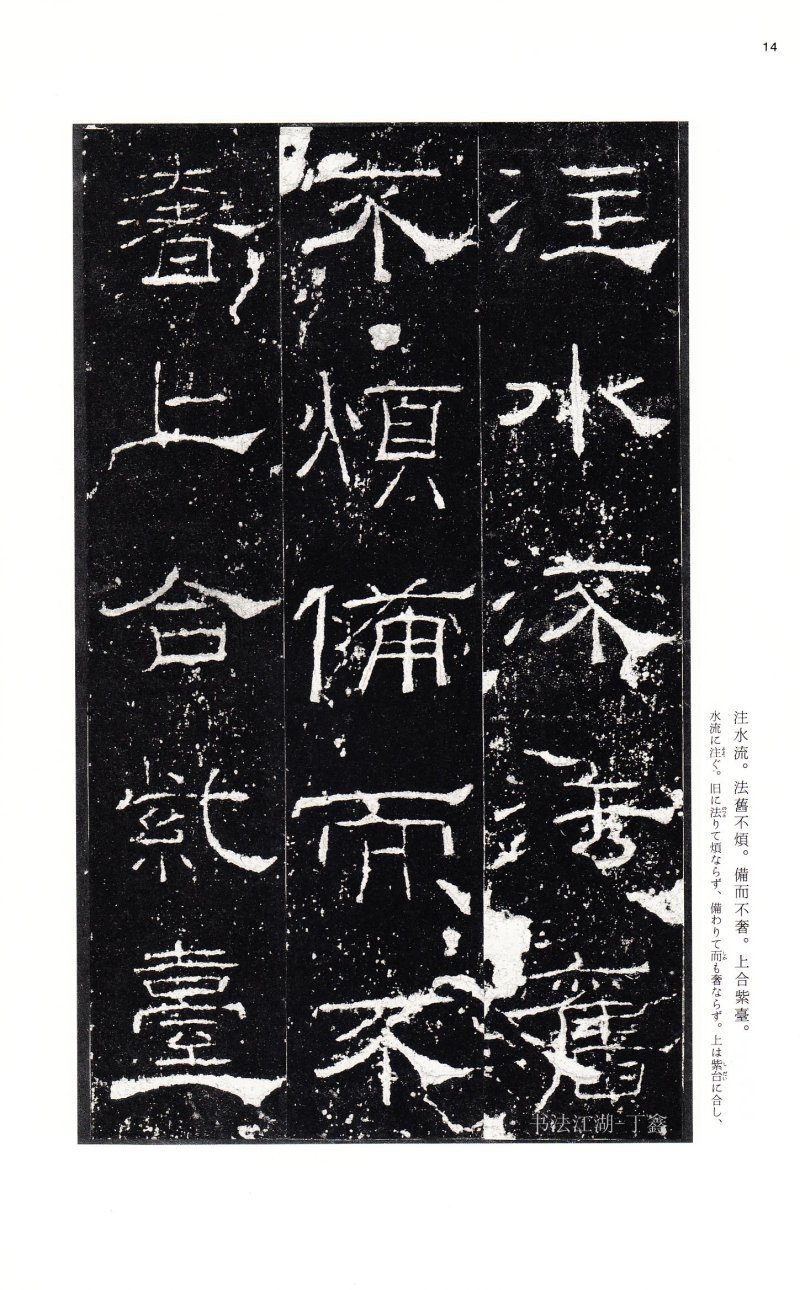 14
注水流法舊
不煩備而不
奢上合紫臺
注水流。法舊不煩。備而不奢。上合紫臺。
水流に注ぐ。旧に法りて煩ならず、備わりて而も奢ならず。上は紫台に合し、
书法江湖-丁鑫